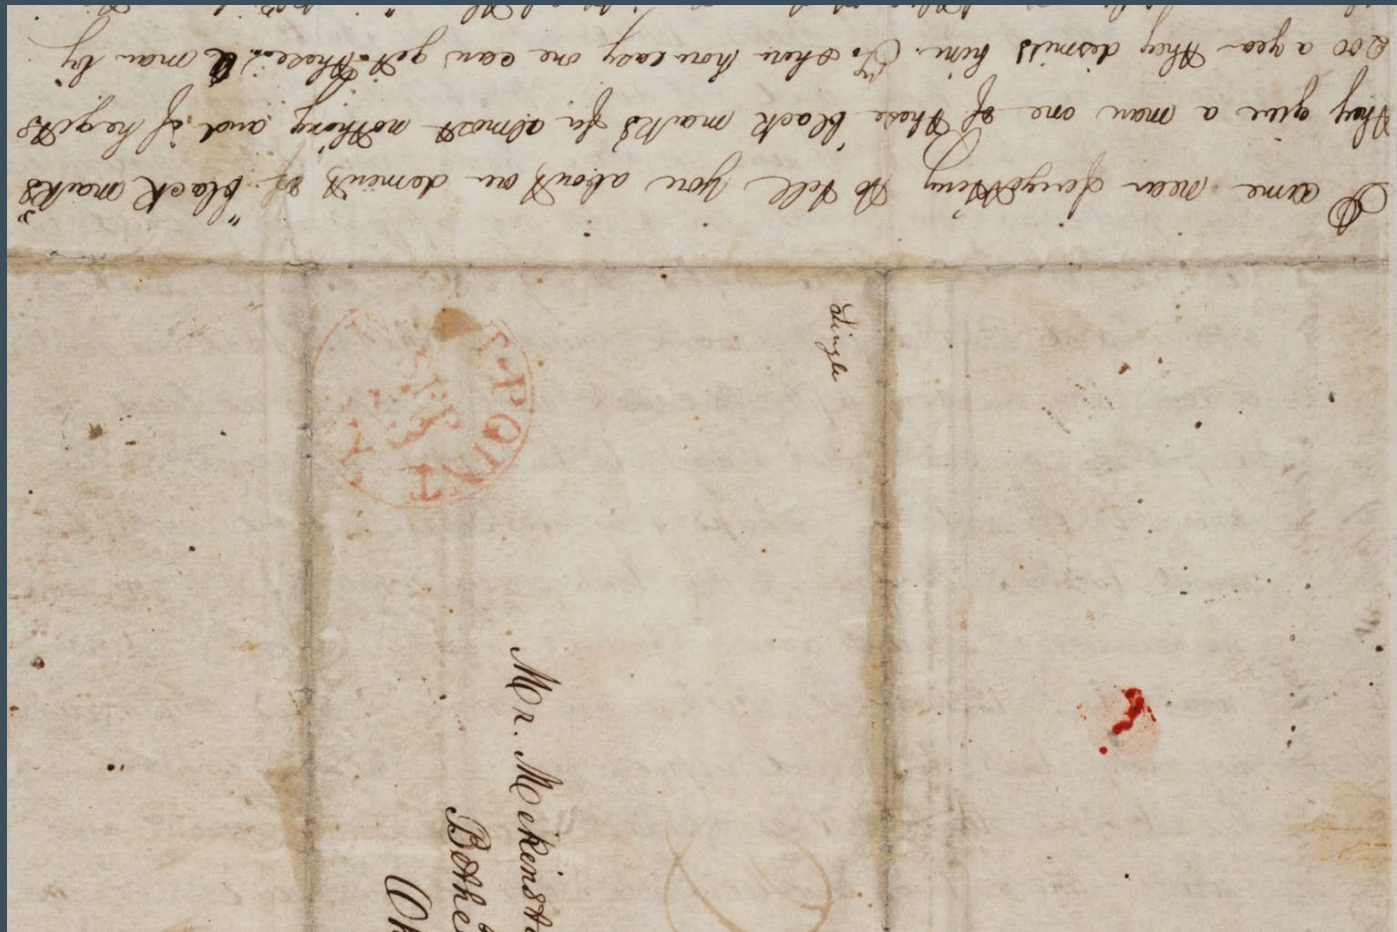 I came near forgetting to tell you about our demerit or "black marks"
They give a man one of these "black marks for almost nothing and if he gets
200 a year they dismiss him. To show how easy one can get these a man by
Single
T-POINT
SEP
Mr. McKinst
Bethe
Oh